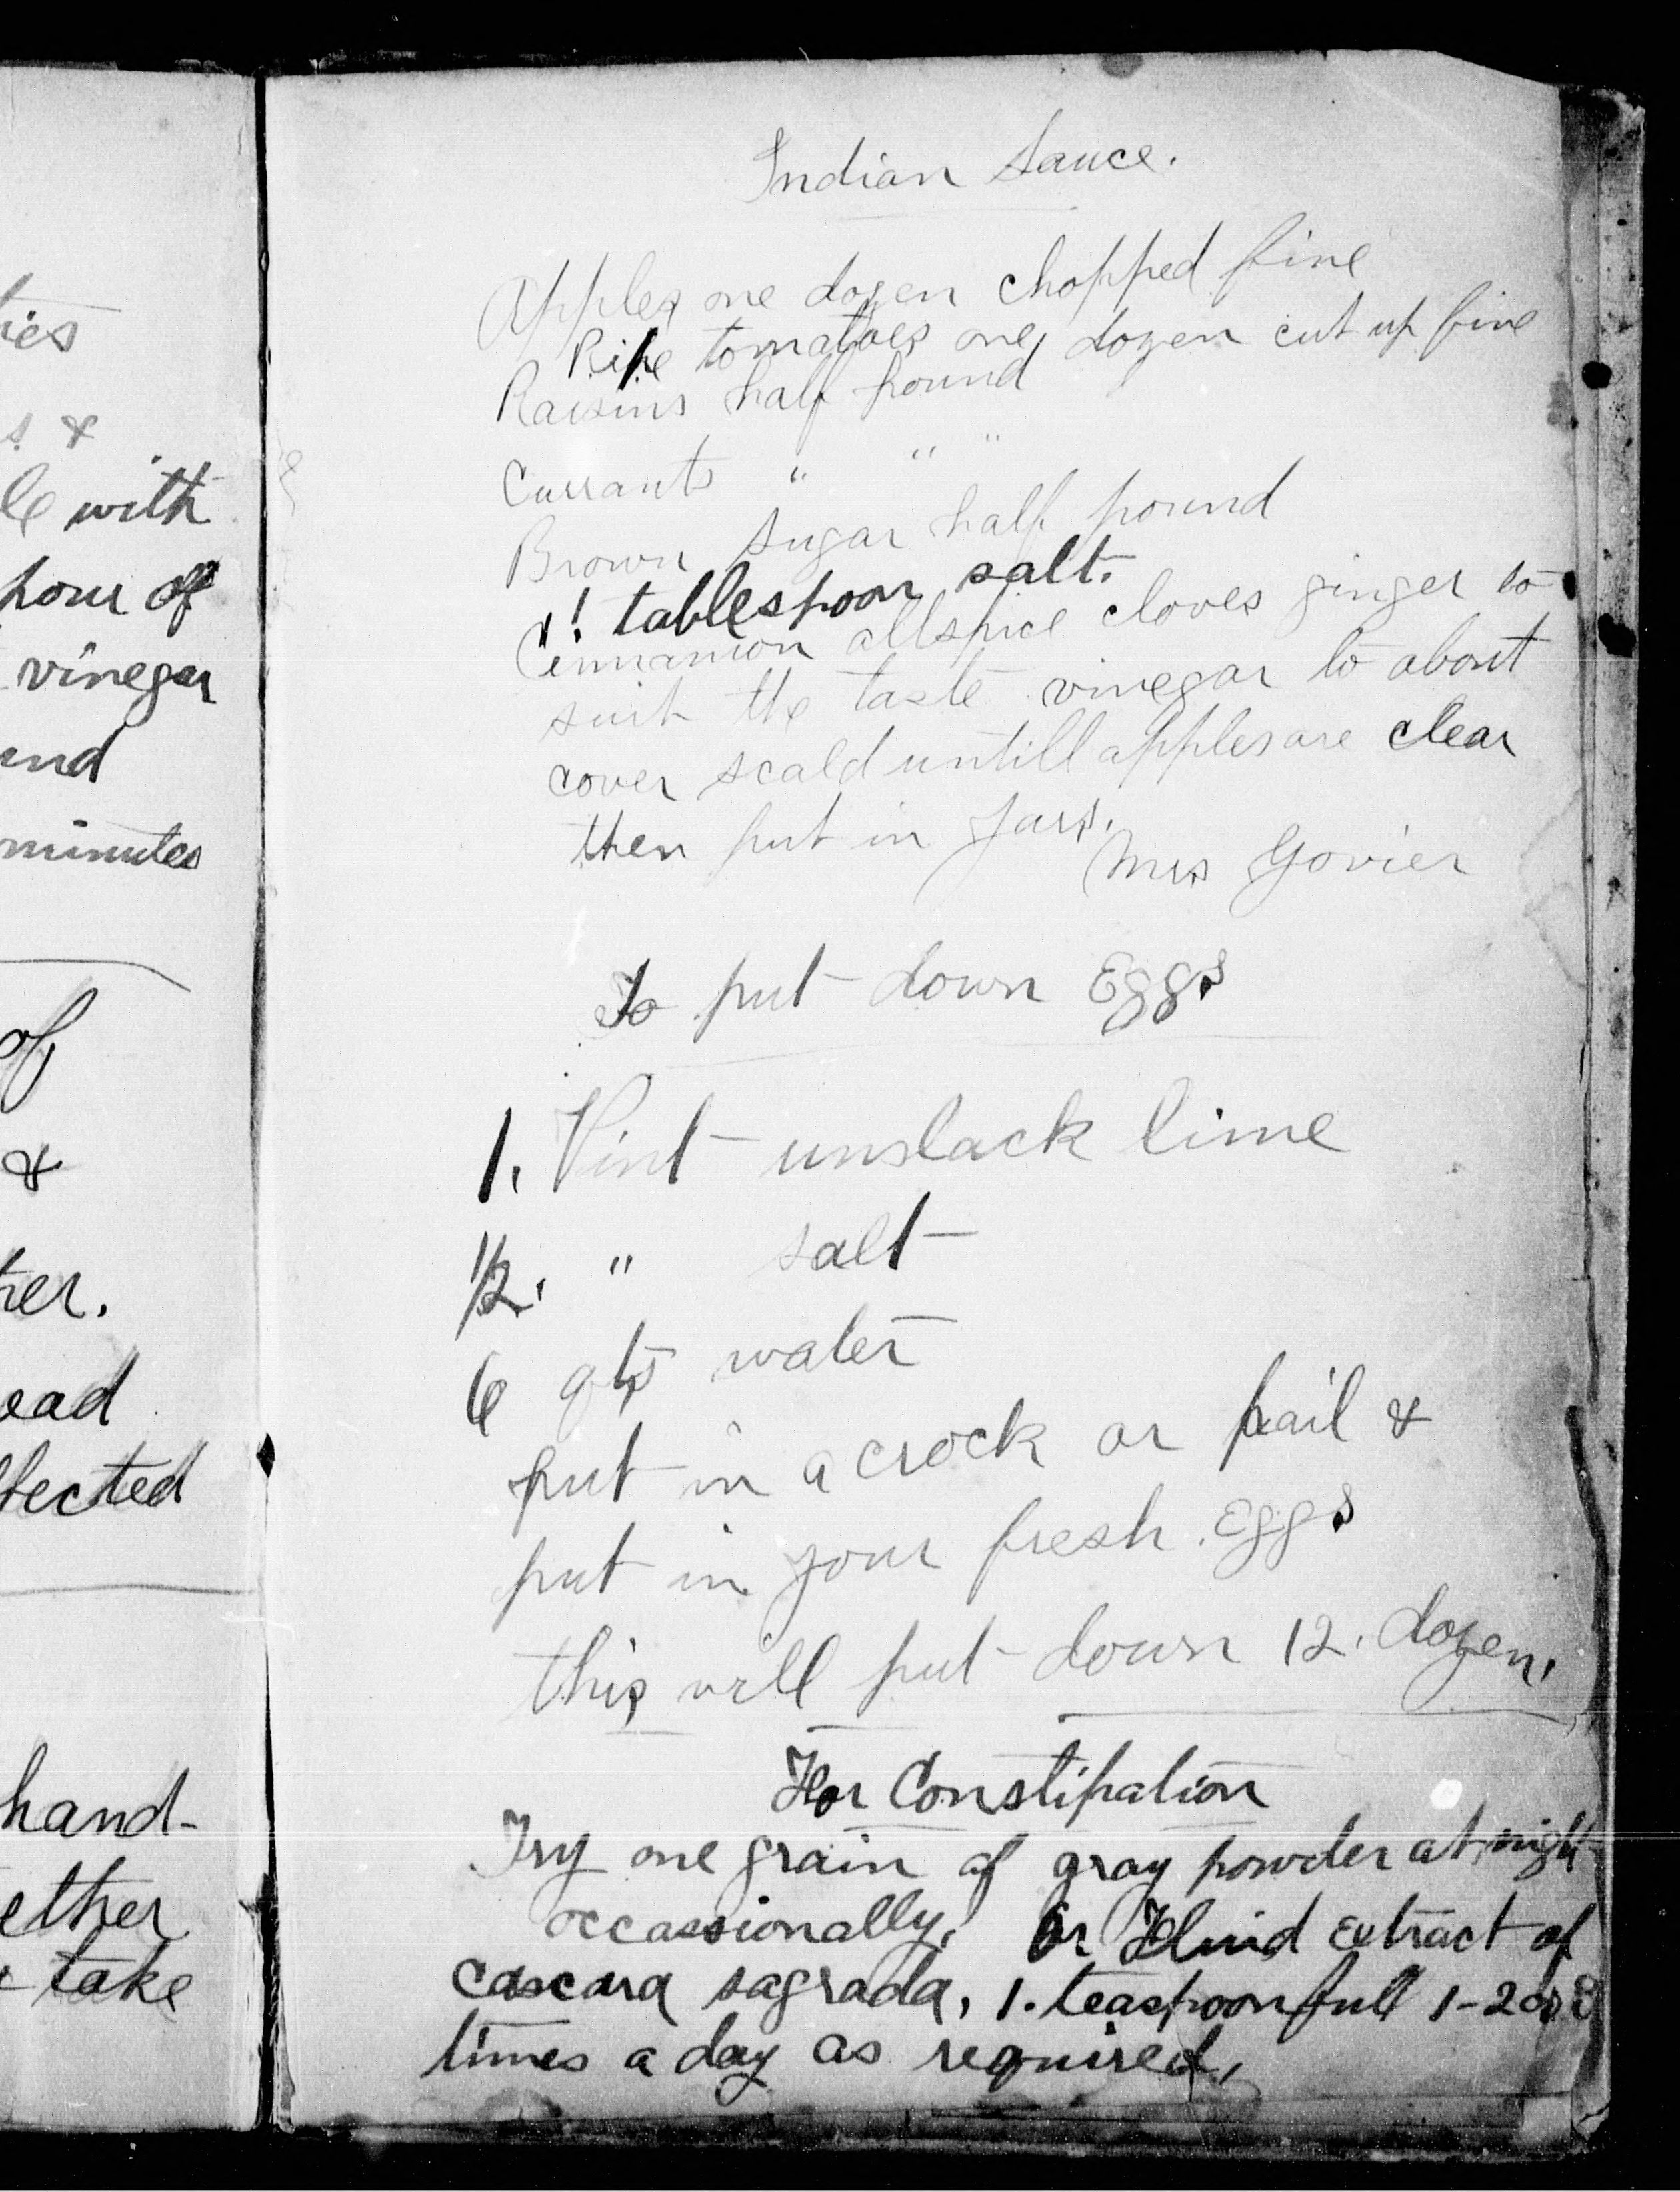 ies
s. &
le with
hour of
vinegar
and
minutes
of
&
her.
ead
lected
hand-
ether
take
Indian Sauce.
Apples one dozen chopped fine
Ripe tomatoes one dozen cut up fine
Raisins half pound
Currants " " "
Brown sugar half pound
1 tablespoon salt.
Cinnamon allspice cloves ginger to
suit the taste vinegar to about
cover scald untill apples are clear
then put in Jars.
Mrs Govier
To put down Eggs
1. Pint unslack lime
1/2. " salt
6 qts water
put in a crock or pail &
put in your fresh Eggs
this will put down 12. dozen.
For Constipation
Try one grain of gray powder at night
occassionally. Or Fluid Extract of
cascara sagrada, 1. teaspoonfull 1-2 or 3
times a day as required.